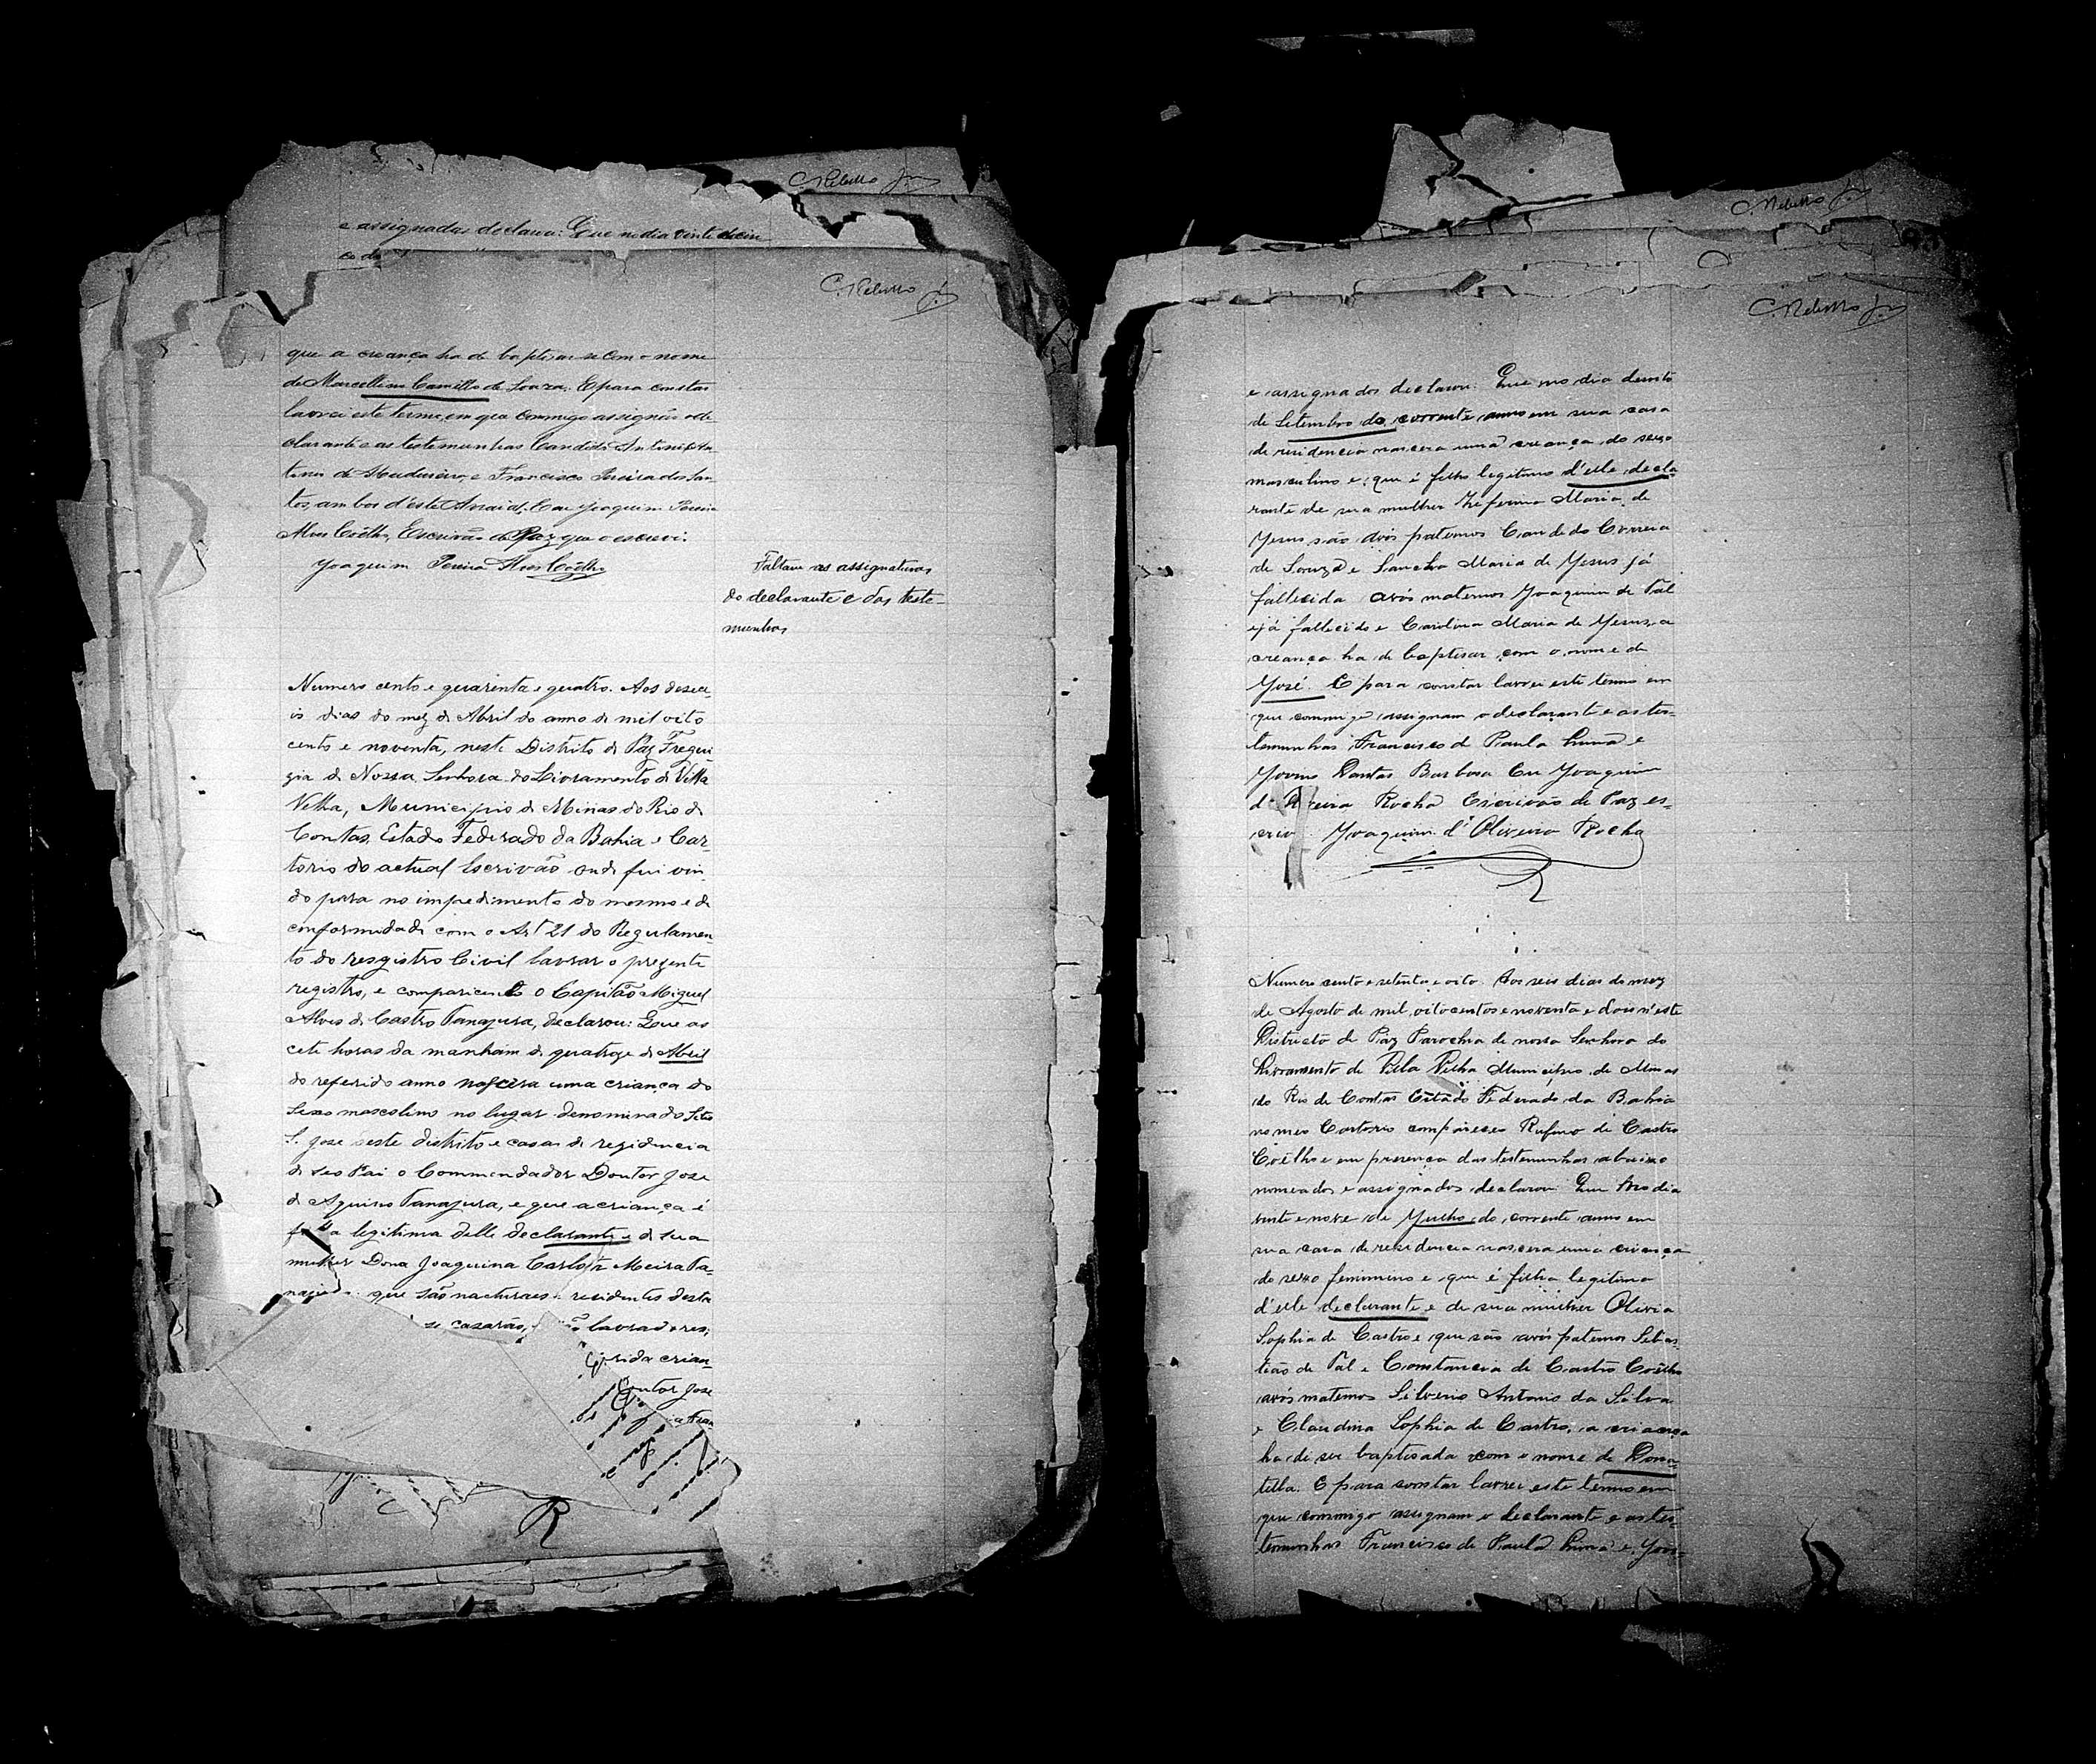 C. Rebello Jr.
e assignadas declarou: Que no dia vinte e cin
co de
C. Rebello Jr.
que a creança ha de baptisar-se com o nome
de Marcellino Camillo de Souza. E para constar
lavrei este termo, em que commigo assignão o de
clarante e as testemunhas Candido Antonio
de Medeiros, e Francisco Pereira dos San
tos, ambos d'este Arraial. Eu Joaquim Pereira
Alves Coêlho, Escrivão de Paz que o escrevi.
Joaquim Pereira Alves Coêlho
Faltam as assignaturas
do declarante e das teste-
munhas
Numero cento e quarenta e quatro. Aos deseca
is dias do mez de Abril do anno de mil oito
cento e noventa, neste Distrito de Paz Fregui
zia de Nossa Senhora do Livramento de Villa
Velha, Municipio de Minas do Rio de
Contas, Estado Federado da Bahia e Car-
torio do actual Escrivão onde fui vin-
do para no impedimento do mesmo e de
conformidade com o Art 21 do Regulamen
to do resgistro Civil lavrar o prezente
registro, e comparicendo o Capitão Miguel
Alves de Castro Tanajura, declarou: Que as
cete horas da manham de quatroze de Abril
do referido anno nascera uma criança do
Sexo mascolino no lugar denominado Sitio
S. Jose deste distrito e casa de rezidencia
de seo Pai o Commendador Doutor Jose
de Aquino Tanajura, e que a criança é
filha legitima delle declarante e de sua
mulher Dona Joaquina Carlota Meira Ta-
najura que são nacturaes e residentes desta
se casarão, são lavradores;
crian-
Doutor Jose
C. Rebello Jr.
C. Rebello Jr.
e assignados declarou: Que no dia desoito
de Setembro do corrente anno em sua casa
de residencia nascera uma creança do sexo
masculino e que é filho legitimo d'elle decla
rante de sua mulher Zeferina Maria de
Jesus são avós paternos Candido Correia
de Souza e Sancha Maria de Jesus já
fallecida avós maternos Joaquim de Tal
já fallecido e Carolina Maria de Jesus, a
creança ha de baptisar com o nome de
José. E para constar lavrei este termo em
que commigo assignam o declarante e as tes-
temunhas Francisco de Paula Lima e
Jovino Dantas Barbosa Eu Joaquim
d'Oliveira Rocha Escrivão de Paz es-
crevi. Joaquim d'Oliveira Rocha
Numero cento e setenta e oito. Aos seis dias do mez
de Agosto de mil oitocentos e noventa e dous n'este
Districto de Paz Parochia de nossa Senhora do
Livramento de Villa Velha Municipio de Minas
do Rio de Contas Estado Federado da Bahia
no meo Cartorio compareceo Rufino de Castro
Coêlho e em presença das testemunhas abaixo
nomeados e assignados declarou: Que no dia
vinte e nove de Julho do corrente anno em
sua casa de residencia nascera uma criança
do sexo feminino e que é filha legitima
d'elle declarante e de sua mulher Olivia
Sophia de Castro e que são avós paternos Sebas
tião de Tal e Constancia de Castro Coêlho
avós maternos Silverio Antonio da Silva
e Claudina Sophia de Castro, a criança
ha de ser baptisada com o nome de Dona-
tilla. E para constar lavrei este termo em
que commigo assignam o declarante e as tes-
temunhas Francisco de Paula Lima e Jovi-